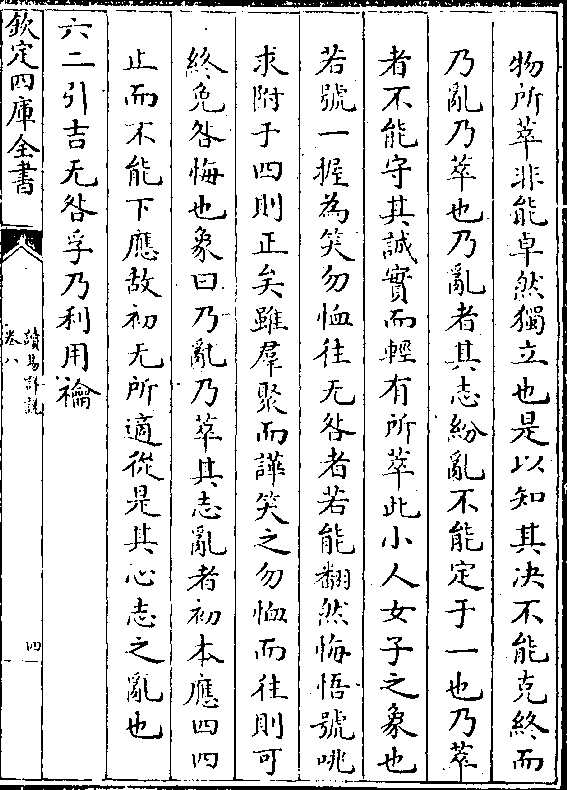 物所萃非能卓然獨立也是以知其决不能克終而
乃亂乃萃也乃亂者其志紛亂不能定于一也乃萃
者不能守其誠實而輕有所萃此小人女子之象也
若號一握為笑勿恤往无咎者若能翻然悔悟號咷
求附于四則正矣雖羣聚而譁笑之勿恤而往則可
終免咎悔也象曰乃亂乃萃其志亂者初本應四四
止而不能下應故初无所適從是其心志之亂也
六二引吉无咎孚乃利用禴
欽定四庫全書
讀易詳說
卷八
四